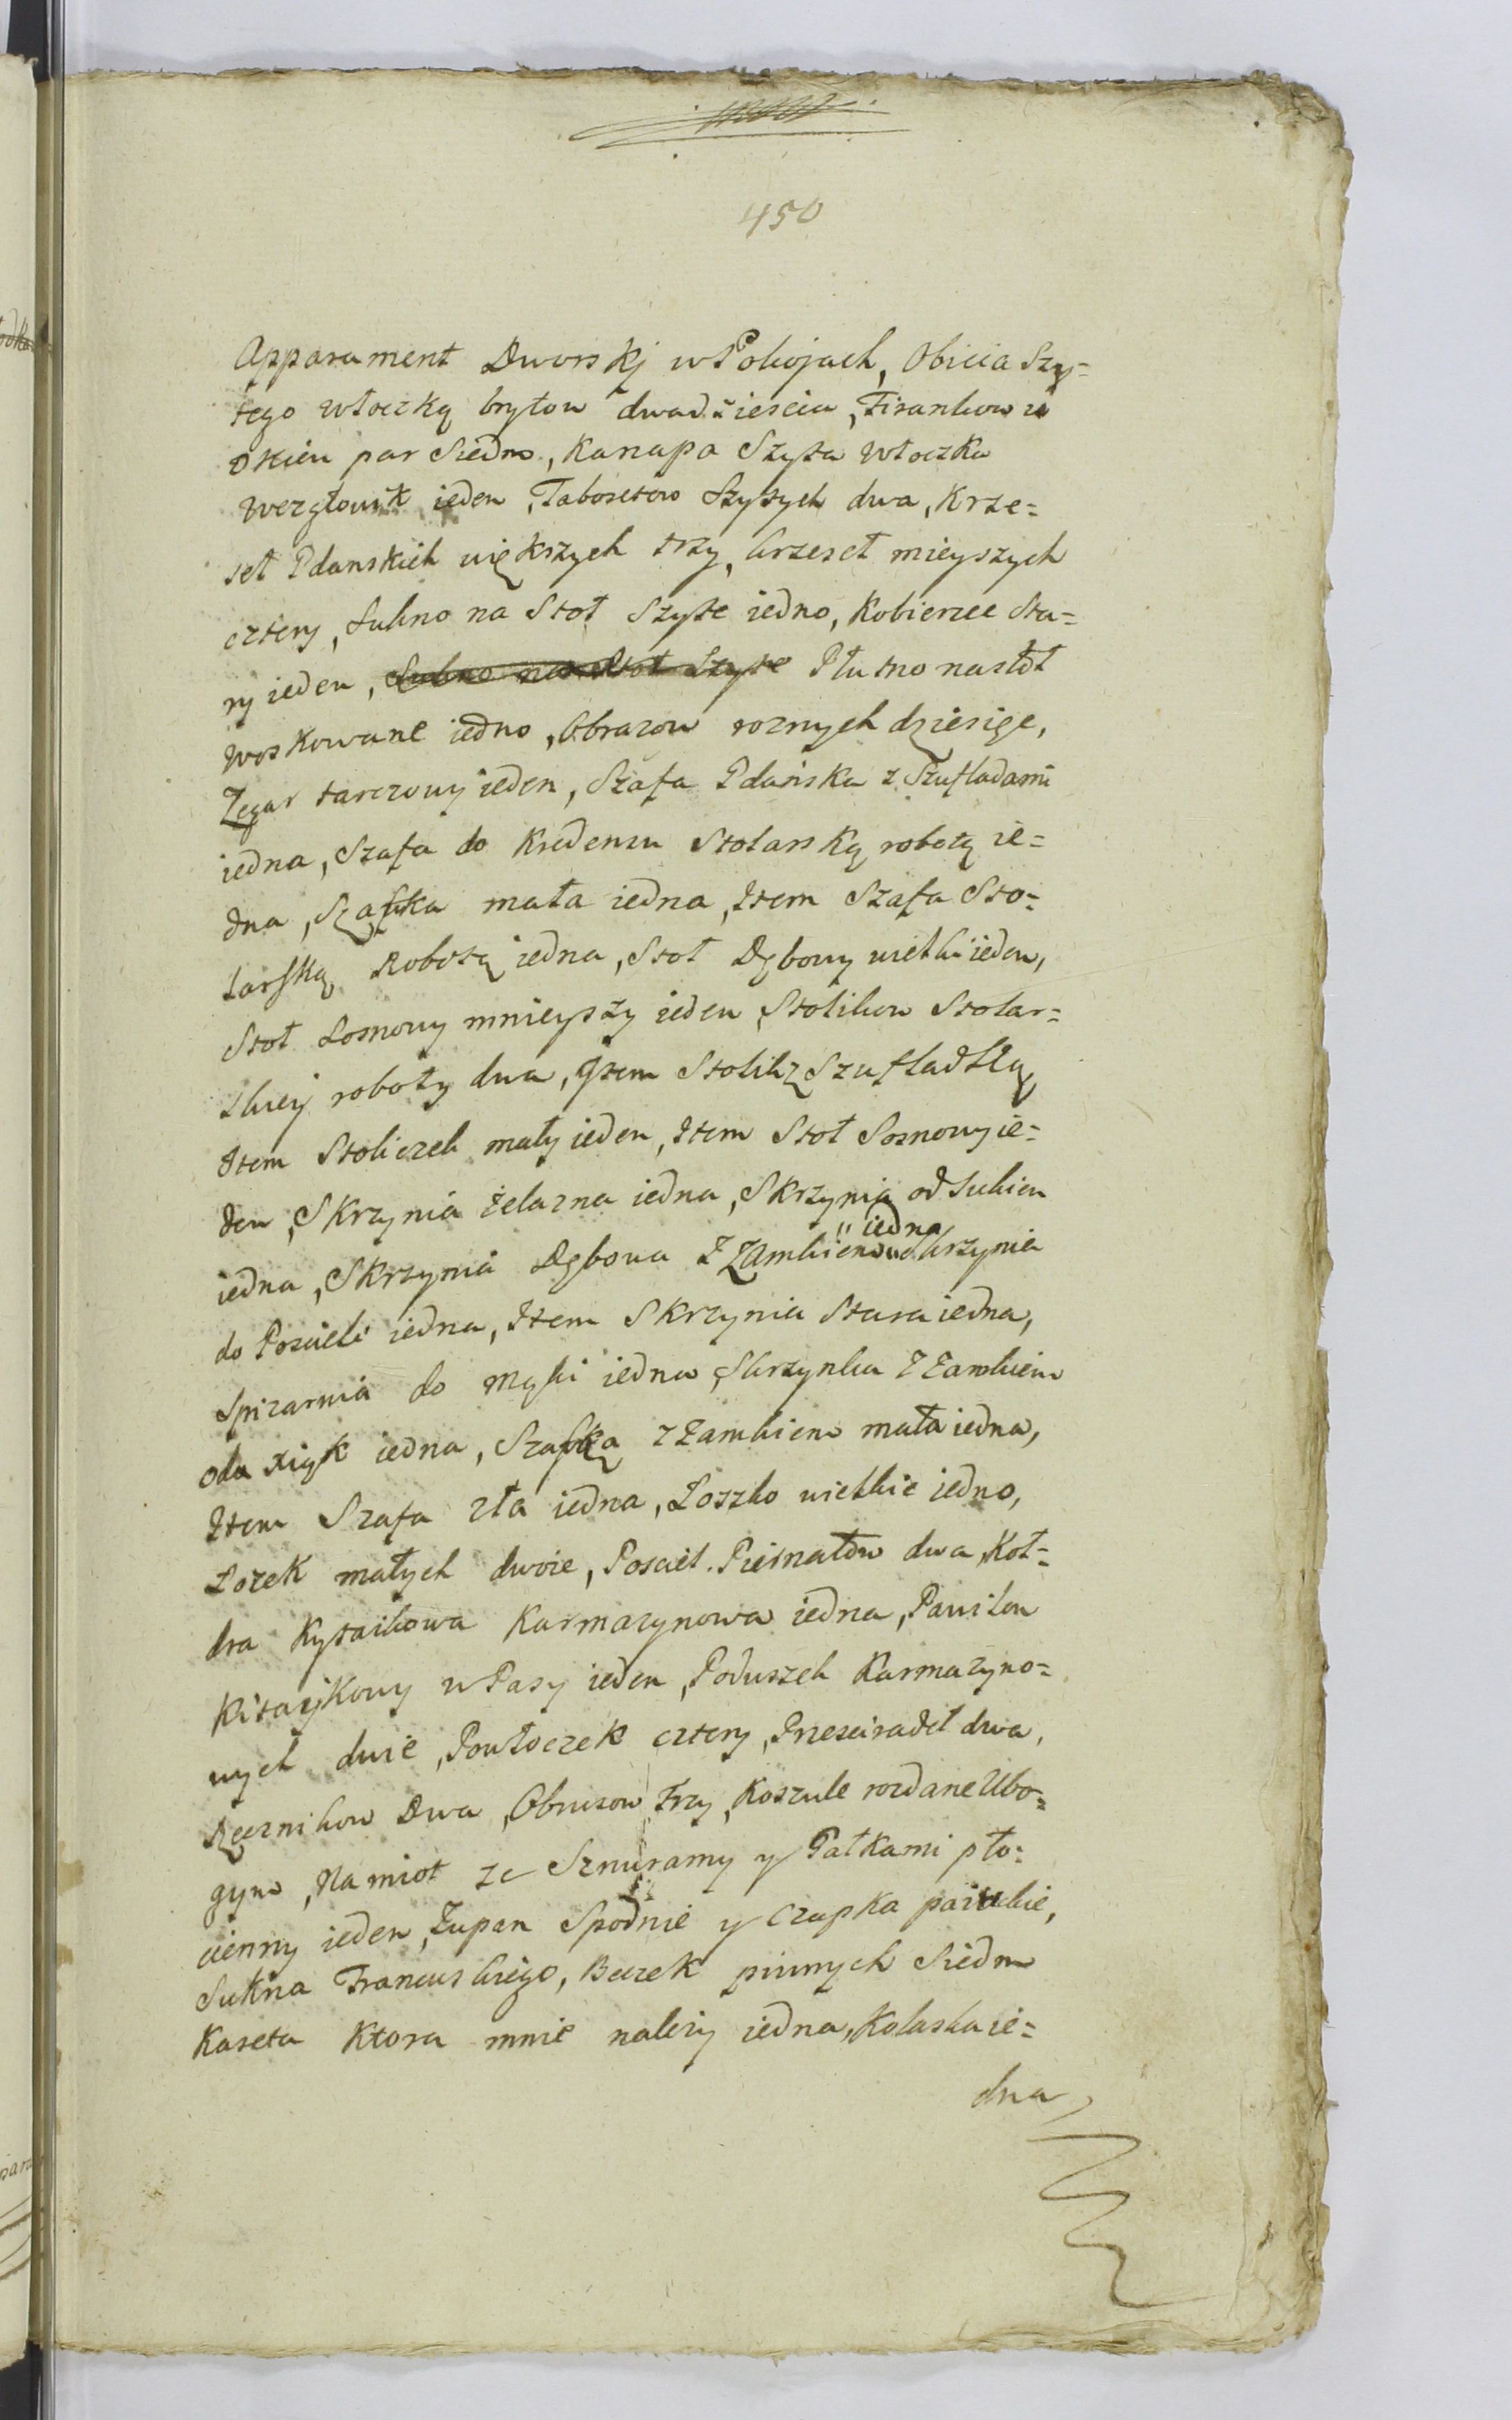 450
Apparament Dworskj w Pokojach, Obicia Szy=
tego włoczką brytow dwadziescia, Firankow u
okien par Siedm, Kanapa Szyta włoczka
wezgłowik ieden, Taboretow Szytych dwa, Krze=
seł Gdanskich większych trzy, krzeseł mieyszych
cztery, Sukno na Stoł Szyte iedno, Kobierzec sta=
ry ieden, Sukno na Stoł Szyte Płutno na stoł
woskowane iedno, Obrazow roznych dziesięc,
Zegar tarczowy ieden, Szafa Gdańska z Szufladami
iedna, Szafa do Kredensu Stolarską robotą ie=
dna, Szafka mała iedna, Item Szafa Sto=
larską Robotą iedna, Stoł Dębowy wielki ieden,
Stoł Sosnowy mnieyszy ieden, Stolikow Stolar=
skiey roboty dwa, Item Stolik z Szufladką,
Item Stoliczek mały ieden, Item Stoł Sosnowy ie=
den, Skrzynia żelazna iedna, Skrzynia od Sukien
iedna, Skrzynia Dębowa z Zamkiem iedna Skrzynia
do Posciели iedna, Item Skrzynia Stara iedna,
Spizarnia do Mąki iedna, Skrzynka z Zamkiem
oda xiąk iedna, Szafka z Zamkiem mała iedna,
Item Szafa zła iedna, Łoszko wielkie iedno,
Łozek małych dwoie, Posciel. Piernatow dwa, Koł=
dra Kytaikowa Karmazynowa iedna, Pawilon
Kitaykowy w Pasy ieden, Poduszek Karmazyno=
wych dwie, Powłoczek cztery, Przescieradeł dwa,
Ręcznikow Dwa, Obrusow Trzy, Koszule rozdane Ubo=
gym, Namiot ze Sznuramy y Pałkami pło=
cienny ieden, Zupan Spodnie y Czapka paiukie,
Sukna Francuskiego, Beczek piwnych Siedm
Kareta Ktora mnie nalezy iedna, Kolaska ie=
dna